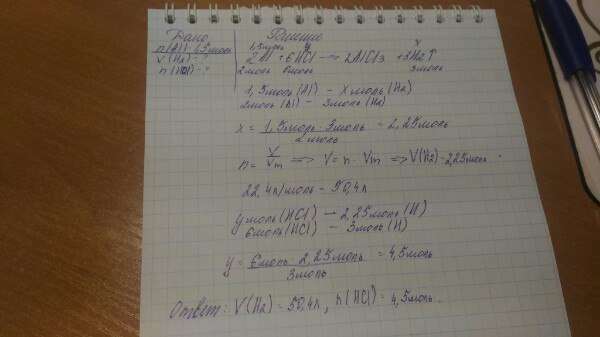 Дано
n(Al) = 1,5 моль
V(H2) - ?
n(HCl) - ?
Решение
1,5 моль y x
2Al + 6HCl → 2AlCl3 + 3H2↑
2 моль 6 моль 3 моль
1,5 моль (Al) – x моль (H2)
2 моль (Al) – 3 моль (H2)
x = 1,5 моль · 3 моль = 2,25 моль
2 моль
n = V/Vm => V = n · Vm => V(H2) = 2,25 моль ·
22,4 л/моль = 50,4 л
y моль (HCl) – 2,25 моль (H)
6 моль (HCl) – 3 моль (H)
y = 6 моль · 2,25 моль = 4,5 моль
3 моль
Ответ: V(H2) = 50,4 л, n(HCl) = 4,5 моль.